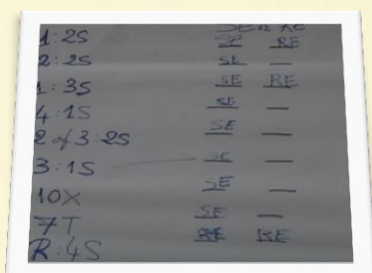 SE or RE
1:2S SE RE
2:2S SE —
1:3S SE RE
4:1S SE —
2 of 3:2S SE —
3:1S — SE —
10X SE —
7T SE —
R:4S RE RE